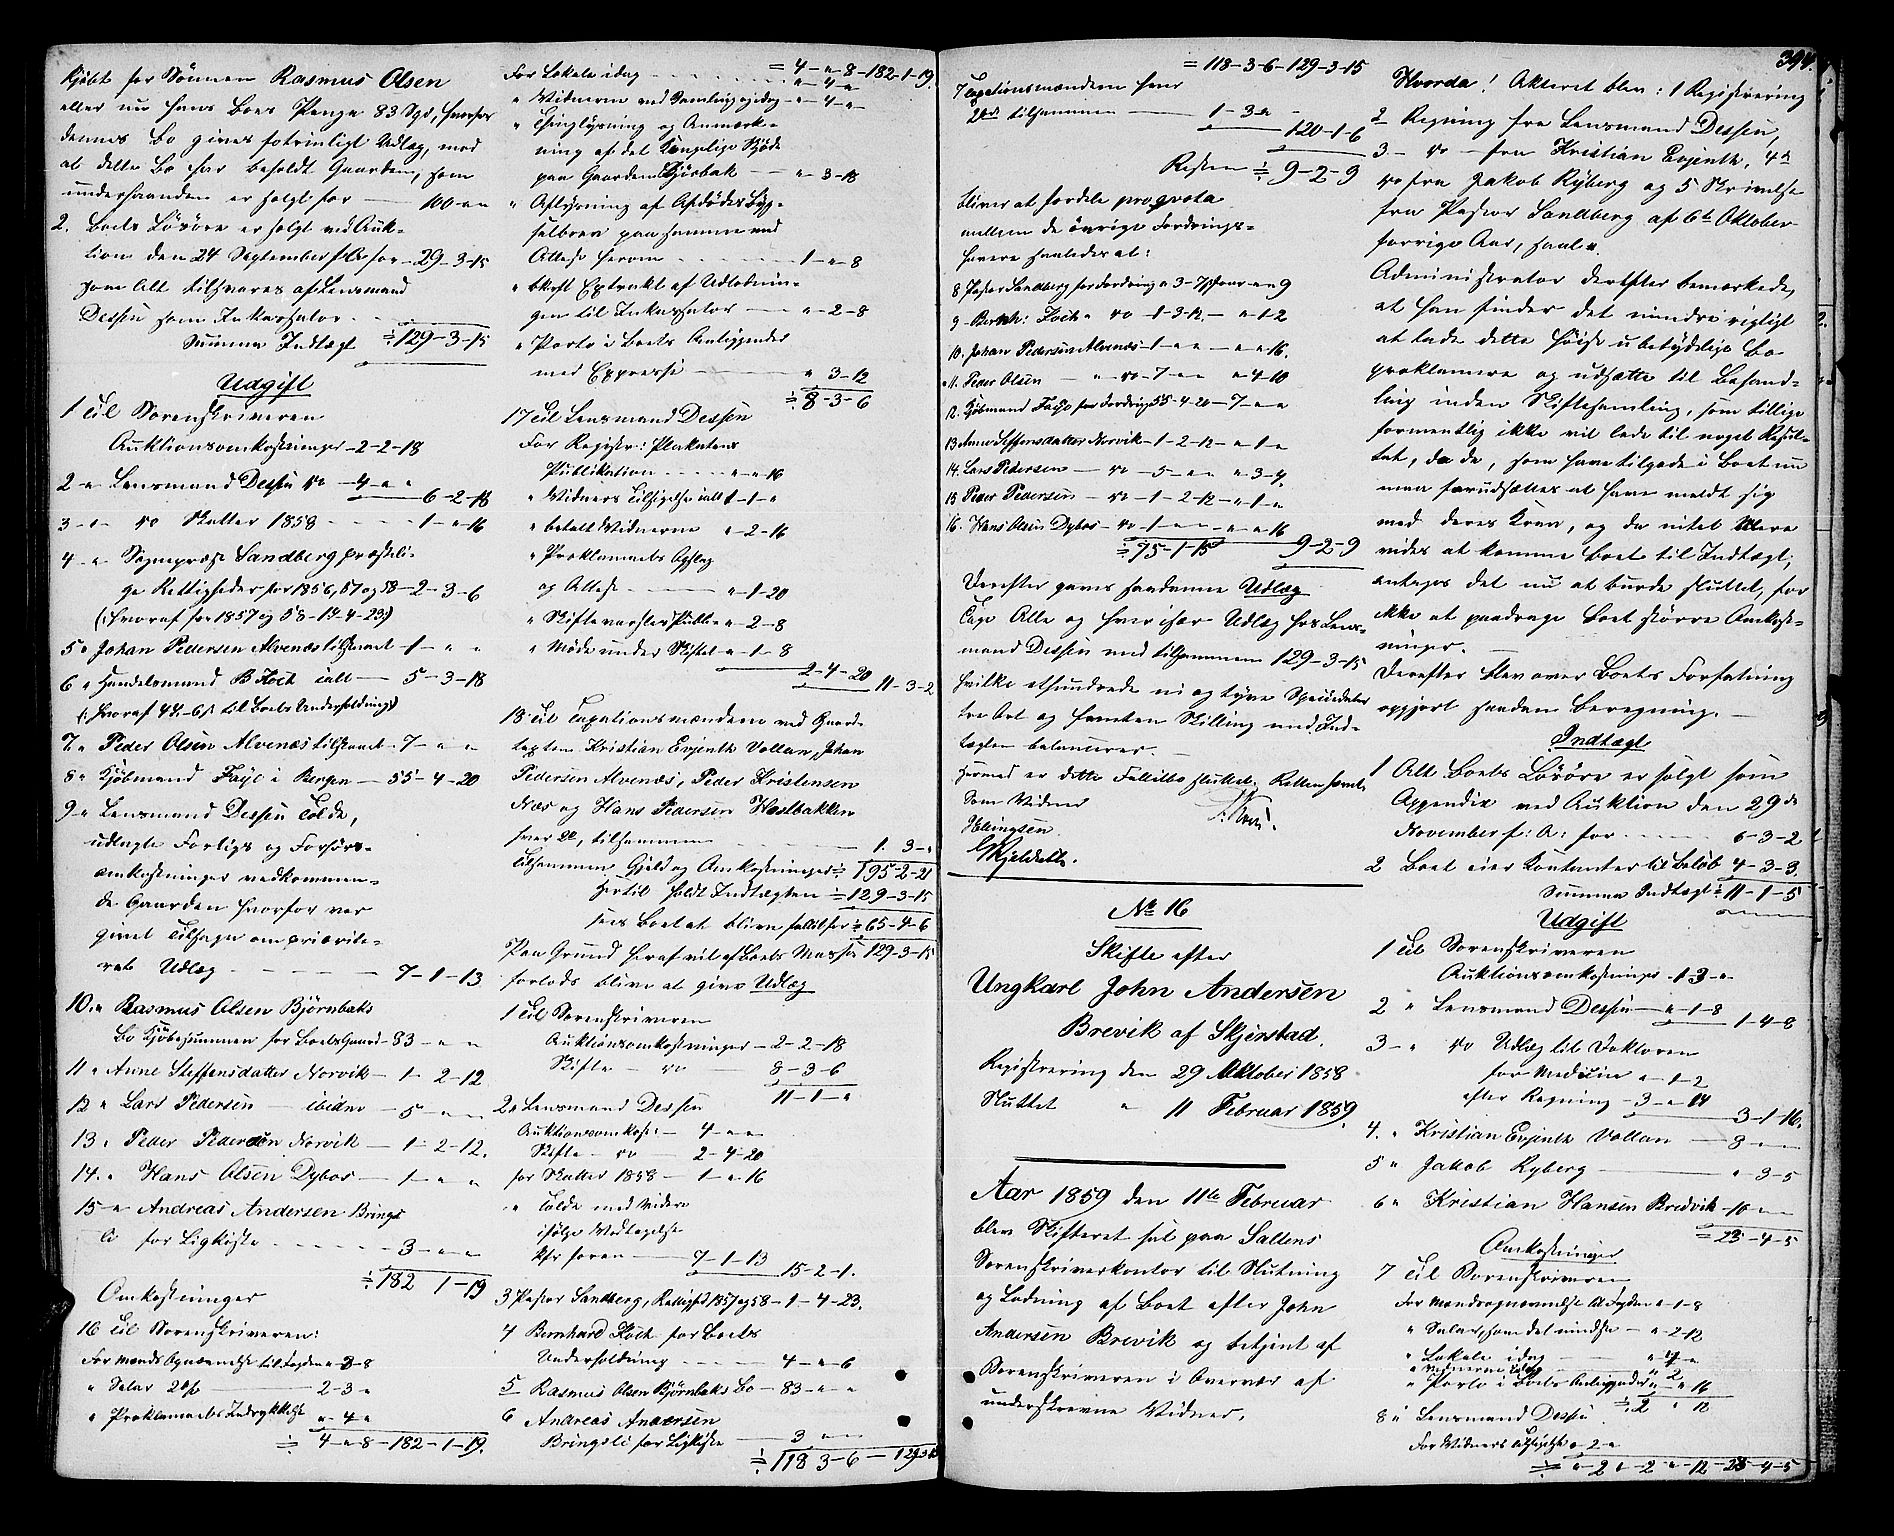 kjøbt for Sønnen Rasmus Olsen
eller nu hans Boes Penge 83 Spd, hvorfor
dennes Bo gives fortrinligt Udlæg, mod
at dette Bo har beholdt Gaarden, som
underhaanden er solgt for — 100 — " — "
2. Boets Løsøre er solgt ved Auk-
tion den 24 September f. A. for — 29-3-15
som Alt tilsvares af Lensmand
Dessen som Inkassator.
Summa Indtægt ÷ 129-3-15
Udgift
1 Til Sorenskriveren
Auktionsomkostninger - 2-2-18
2 - " Lensmand Dessen do — 4 - " - "
6-2-18
3 - " do Skatter 1858 - - - - 1 - " - 16
4 - " Sognepræst Sandberg præsteli-
ge Rettigheder for 1856, 57 og 58 - 2-3-6
(: hvoraf for 1857 og 58 - 1-4-23:)
5 " Johan Pedersen Alvenæs tilstaaet - 1 - " - "
6 " Handelsmand B Koch ialt — 5-3-18
(: hvoraf 4-"-6 s til Boets Underholdning:)
7. " Peder Olsen Alvenæs tilstaaet - 7 - " - "
8 " Kjøbmand Faye i Bergen — 55-4-20
9 " Lensmand Dessen Tolde,
udlagte Forligs og Forhørs-
omkostninger vedkommen-
de Gaarden hvorfor var
givet Tilsagn om priorite-
ret Udlæg - - - - 7-1-13
10. " Rasmus Olsen Bjørnbaks
Bo Kjøbesummen for Boets Gaard - 83 - " - "
11 " Anne Steffensdatter Norvik - 1 - 2-12
12 " Lars Pedersen — ibidm — 5 - " - "
13. " Peder Pedersen Norvik — 1-2-12.
14. " Hans Olsen Dybos — 1 - " - "
15 - " Andreas Andersen Brings
li for Ligkiste - - - - - 3 - " - "
÷ 182-1-19
Omkostninger
16 Til Sorenskriveren:
For Mænds Opnævnelse til Taxten " - 3-8
" Salær 2 % ——— 2-3 "
" Proklamaets Indrykkelse " - 4 "
÷ 4 - " - 8 - 182-1-19.
÷ 4 - " - 8 - 182-1-19.
For Lokale idag - - - - - " - 4 - "
" Vidnerne ved Samling og idag - " - 4 - "
" Thinglysning og Anmærk-
ning af det kongelige Skjøde
paa Gaarden Bjørbak — " - 3-18
" Aflysning af Afdødes Byg-
selbrev paa samme med
Attest herom - - - - - 1 - " - 8
" bkrft Extrakt af Udlodnin-
gen til Inkassator — " - 2-8
" Porto i Boets Anliggender
med Expresse ——— " 3-12
÷ 8-3-6
17 Til Lensmand Dessen
For Registr: Plakatens
Publikation - - - - - " - " - 16
" Vidners Tilsigelse ialt 1 - 1 - "
" betalt Vidnerne " - 2-16
" Proklamaets Opslag
og Attest - - - " - 1-20
" Skifte varslets Publ - " " - 2-8
" Møde under Skiftet " - 1-8
2-4-20
11-3-2
18 Til Taxationsmændene ved Gaard-
taxten Kristian Evjenth Vollan, Johan
Pedersen Alvenæs, Peder Kristensen
Næs og Hans Pedersen Hestbakken
hver 2 s, tilsammen - - - - - 1. 3 - "
Tilsammen Gjeld og Omkostninger ÷ 195-2-21
hertil holdt Indtægten ÷ 129-3-15
sees Boet at blive fallit for ÷ 65-4-6
Paa Grund heraf vil af Boets Masse 129-3-15
forlods blive at give Udlæg
1 Til Sorenskriveren
Auktionsomkostninger - 2-2-18
Skifte — do — 8-3-6
11-1 - "
2 " Lensmand Dessen
Auktionsomkost: - 4 - " - "
Skifte - do - 2-4-20
for Skatter 1858 - 1 - " - 16
" Tolde med videre
ifølge Vedtagelse
før foran — 7-1-13
15-2-1.
3 Pastor Sandberg, Rettighed 1857 og 58 - 1-4-23.
4 Bernhard Koch for Boets
Underholdning - - - - 4 - " - 6
5 Rasmus Olsen Bjørnbaks Bo - 83 - " - "
6 Andreas Andersen
Bringsli for Ligkiste — 3 - " - "
÷ 118-3-6 — 129-3-15
394.
= 118-3-6-129-3-15
7 Taxationsmændene hver
2 s tilsammen — 1-3 "
120-1-6
Resten ÷ 9-2-9
bliver at fordele pro qvota
mellem de øvrige Fordrings-
havere saaledes at:
8 Pastor Sandberg, for Fordring " 3-7 s faar " " 9
9 - Bernh: Koch " do - 1-3-12. - " 1-2
10. Johan Pedersen Alvenæs - 1 - " - " - " - " 16.
11. Peder Olsen — " do - 7 - " - " " 4-10
12. Kjøbmand Faye for Fordring 55-4-20 - 7 - " - "
13 Anne Steffensdatter Norvik - 1-2-12 - " - 1 - "
14. Lars Pedersen — do — 5 - " - " " 3-4.
15 Peder Pedersen — do - 1-2-12 - " - 1 - "
16. Hans Olsen Dybos - do - 1 - " - " - " - " 16
÷ 75-1-15
9-2-9
Derefter gaves saadanne Udlæg
Tage Alle og hver især Udlæg hos Lens-
mand Dessen med tilsammen 129-3-15
hvilke ethundrede ni og tyve Speciedaler
tre Ort og femten Skilling med Ind-
tægten balancerer.
Hermed er dette Fallitbo sluttet, Retten hævet.
Som Vidner
Hemingsen
GKjeldseth.
No 16
Skifte efter
Ungkarl John Andersen
Brevik af Skjerstad.
Registrering den 29 Oktober 1858
Sluttet " 11 Februar 1859.
Aar 1859 den 11te Februar
blev Skifteret sat paa Saltens
Sorenskriverkontor til Slutning
og Lodning af Boet efter John
Andersen Brevik og betjent af
Sorenskriveren i Overvær af
underskrevne Vidner.
Hvorda! Akteret blev: 1 Registrering
2 Regning fra Lensmand Dessen,
3 - do - fra Kristian Evjenth, 4 "
do fra Jakob Ryberg og 5 Skrivelse
fra Pastor Sandberg af 6te Oktober
forrige Aar, saal ".
Administrator derefter bemærkede,
at han finder det mindre vigtigt
at lade dette høist ubetydelige Bo
proklamere og udsætte til Behand-
ling inden Skiftesamling, som tillige
formentlig ikke vil lede til noget Resul-
tat, da de, som have tilgode i Boet nu
maa forudsættes at have meldt sig
med deres Krav, og da intet Mere
vides at komme Boet til Indtægt;
antages det nu at burde sluttet, for
ikke at paadrage Boet større Omkost-
ninger. —
Derefter blev over Boets Forfatning
opgjort saadan Beregning. —
Indtægt
1 Alt Boets Løsøre er solgt som
Appendix ved Auktion den 29de
November f: A: for - - - - 6-3-2
2 Boet eier Kontanter til Beløb 4-3-3.
Summa Indtægt ÷ 11-1-5
Udgift
1 Til Sorenskriveren
Auktionsomkostninger - 1-3 - "
2 " Lensmand Dessen — " - 1-8
1-4-8
3 - " do Udlæg til Doktoren
for Medicin " - 1-2
efter Regning - 3 - " 14
3-1-16.
4. " Kristian Evjenth Vollan — 8 - " - "
5 " Jakob Ryberg ——— " 3-5
6 " Kristian Hansen Bredvik - 10 - " - "
÷ 23-4-5
Omkostninger
7 Til Sorenskriveren
For Mændsopnævnelse til Taxten " - 1-8
" Salær, som det mindste — " - 2-12
" Lokale idag ——— " 4 - "
" Vidnerne idag ——— " 2
" Porto i Boets Anliggender " - " 16
÷ 2 " 12
8 " Lensmand Dessen
For Vidners Tilsigelse " - 2 - "
÷ " - 2 " - 2 - " - 12 - 23-4-5